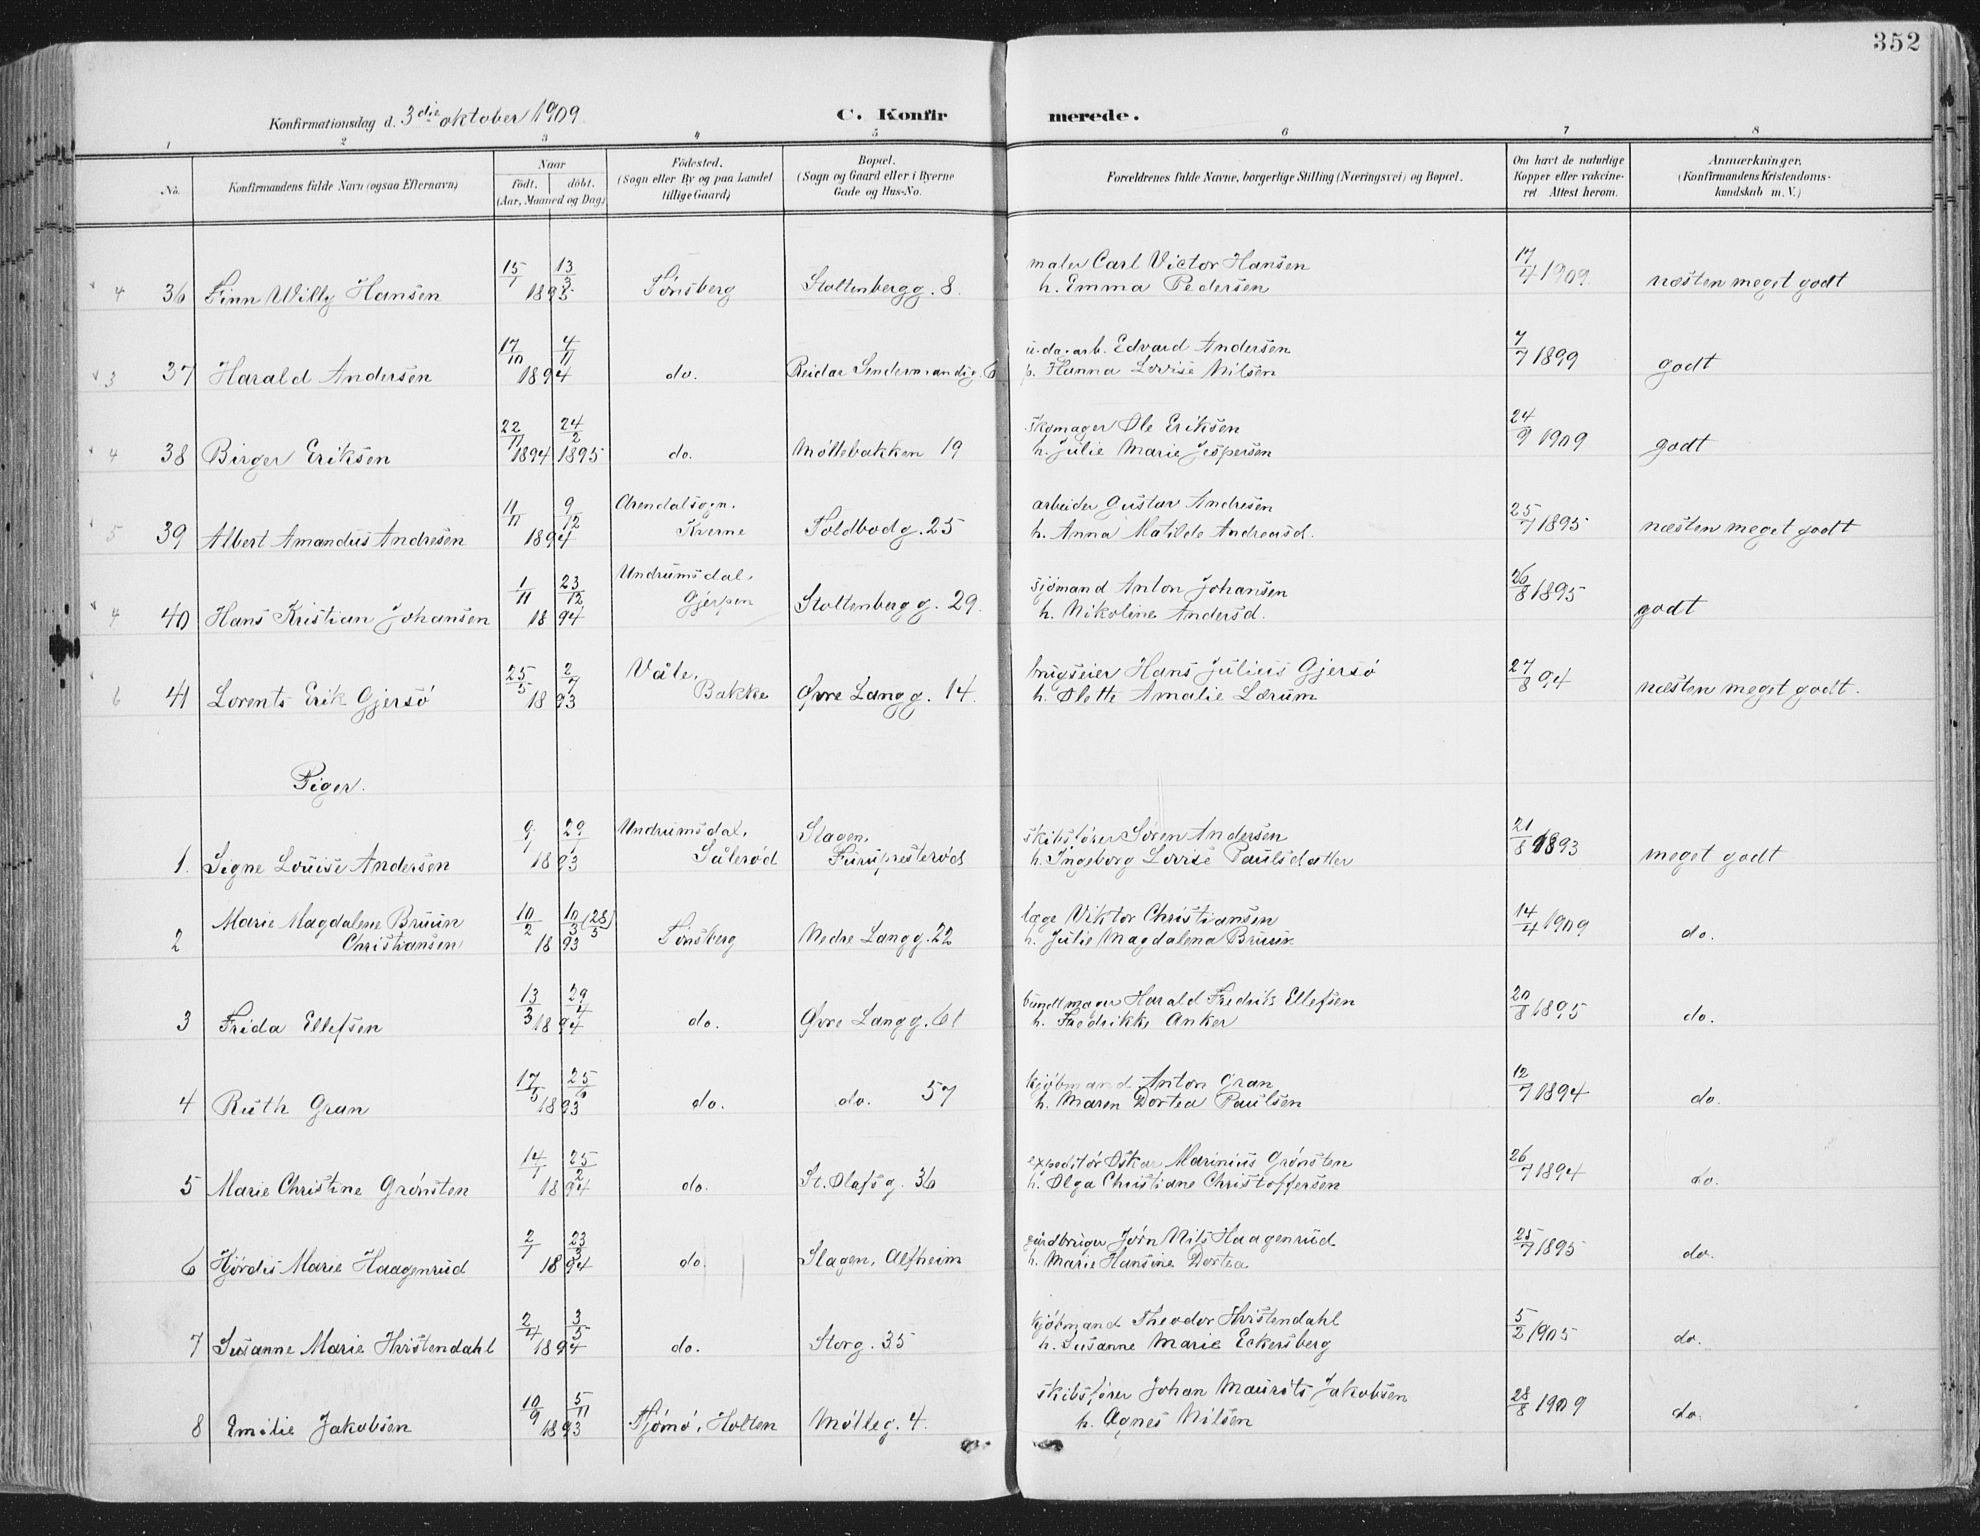 352
Konfirmationsdag d. 3die oktober 1909.
C. Konfirmerede.
1 2 3 4 5 6 7 8
No. Konfirmandens fulde Navn (ogsaa Efternavn) Naar födt. döbt. (Aar, Maaned og Dag) Födested. (Sogn eller By og paa Landet tillige Gaard) Bopæl. (Sogn og Gaard eller i Byerne Gade og Hus-No. Forældrenes fulde Navne, borgerlige Stilling (Næringsvei) og Bopæl. Om havt de naturlige Kopper eller vakcineret Attest herom. Anmærkninger. (Konfirmandens Kristendomskundskab m. V.)
4 36 Finn Willy Hansen 15/1 13/3 1895 Tønsberg Stoltenbergg. 8. maler Carl Victor Hansen
h. Emma Pedersen 17/4 1909 næsten meget godt
3 37 Harald Andersen 17/10 4/11 1894 do. Reidar Sendemandsg. 6 Edvard Andersen
h. Hanna Lovise Nilsen 7/7 1899 godt
4 38 Birger Eriksen 22/11 1894 24/2 1895 do. Møllebakken 19 skomager Ole Eriksen
h. Julie Marie Jespersen 24/9 1909 godt
5 39 Albert Amandus Andresen 11/11 9/12 1894 Arendalsogn.
Kverne Toldbodg. 25 arbeider Gustav Andresen
h. Anna Matilde Andreasd. 25/7 1895 næsten meget godt
4 40 Hans Kristian Johansen 1/11 23/12 1894 Undrumsdal,
Gjerpen Stoltenbergg. 29. sjømand Anton Johansen
h. Nikoline Andersd. 26/8 1895 godt
6 41 Lorents Erik Gjersø 25/5 2/7 1893 Våle,
Bakke Øvre Langg. 14. brugseier Hans Julius Gjersø
h. Olette Amalie Lærum 27/8 94 næsten meget godt.
Piger.
1. Signe Louise Andersen 9/1 29/1 1893 Undrumsdal,
Sålerød Slagen,
Furupresterød skibsfører Søren Andersen
h. Ingeborg Lovise Paulsdatter 21/8 1893 meget godt
2 Marie Magdalene Bruun
Christiansen 10/2 10/3 (28/5) 1893 Tønsberg Nedre Langg. 22 læge Viktor Christiansen
h. Julie Magdalena Bruun 14/4 1909 do.
3 Frida Ellefsen 13/3 29/4 1894 do. Øvre Langg. 61 buntmager Harald Fredrik Ellefsen
h. Fredrikke Anker 20/8 1895 do.
4 Ruth Gran 17/5 25/6 1893 do. do. 57 kjøbmand Anton Gran
h. Maren Dortea Paulsen 12/7 1894 do.
5 Marie Christine Grønsten 14/1 25/2 1894 do. St. Olafsg. 36 expeditør Oskar Marinius Grønsten
h. Olga Christiane Christoffersen 26/7 1894 do.
6 Hjørdis Marie Haagenrud 2/1 23/3 1894 do. Slagen, Alfheim gårdbruger Jørn Nils Haagenrud
h. Marie Hansine Dortea 25/7 1895 do.
7 Susanne Marie Hvistendahl 2/4 3/5 1894 do. Storg. 35 kjøbmand Theodor Hvistendahl
h. Susanne Marie Eckersberg 5/2 1905 do.
8 Emilie Jakobsen 10/9 5/11 1893 Tjømø, Holten Mølleg. 4. skibsfører Johan Maurits Jakobsen
h. Agnes Nilsen 28/8 1909 do.